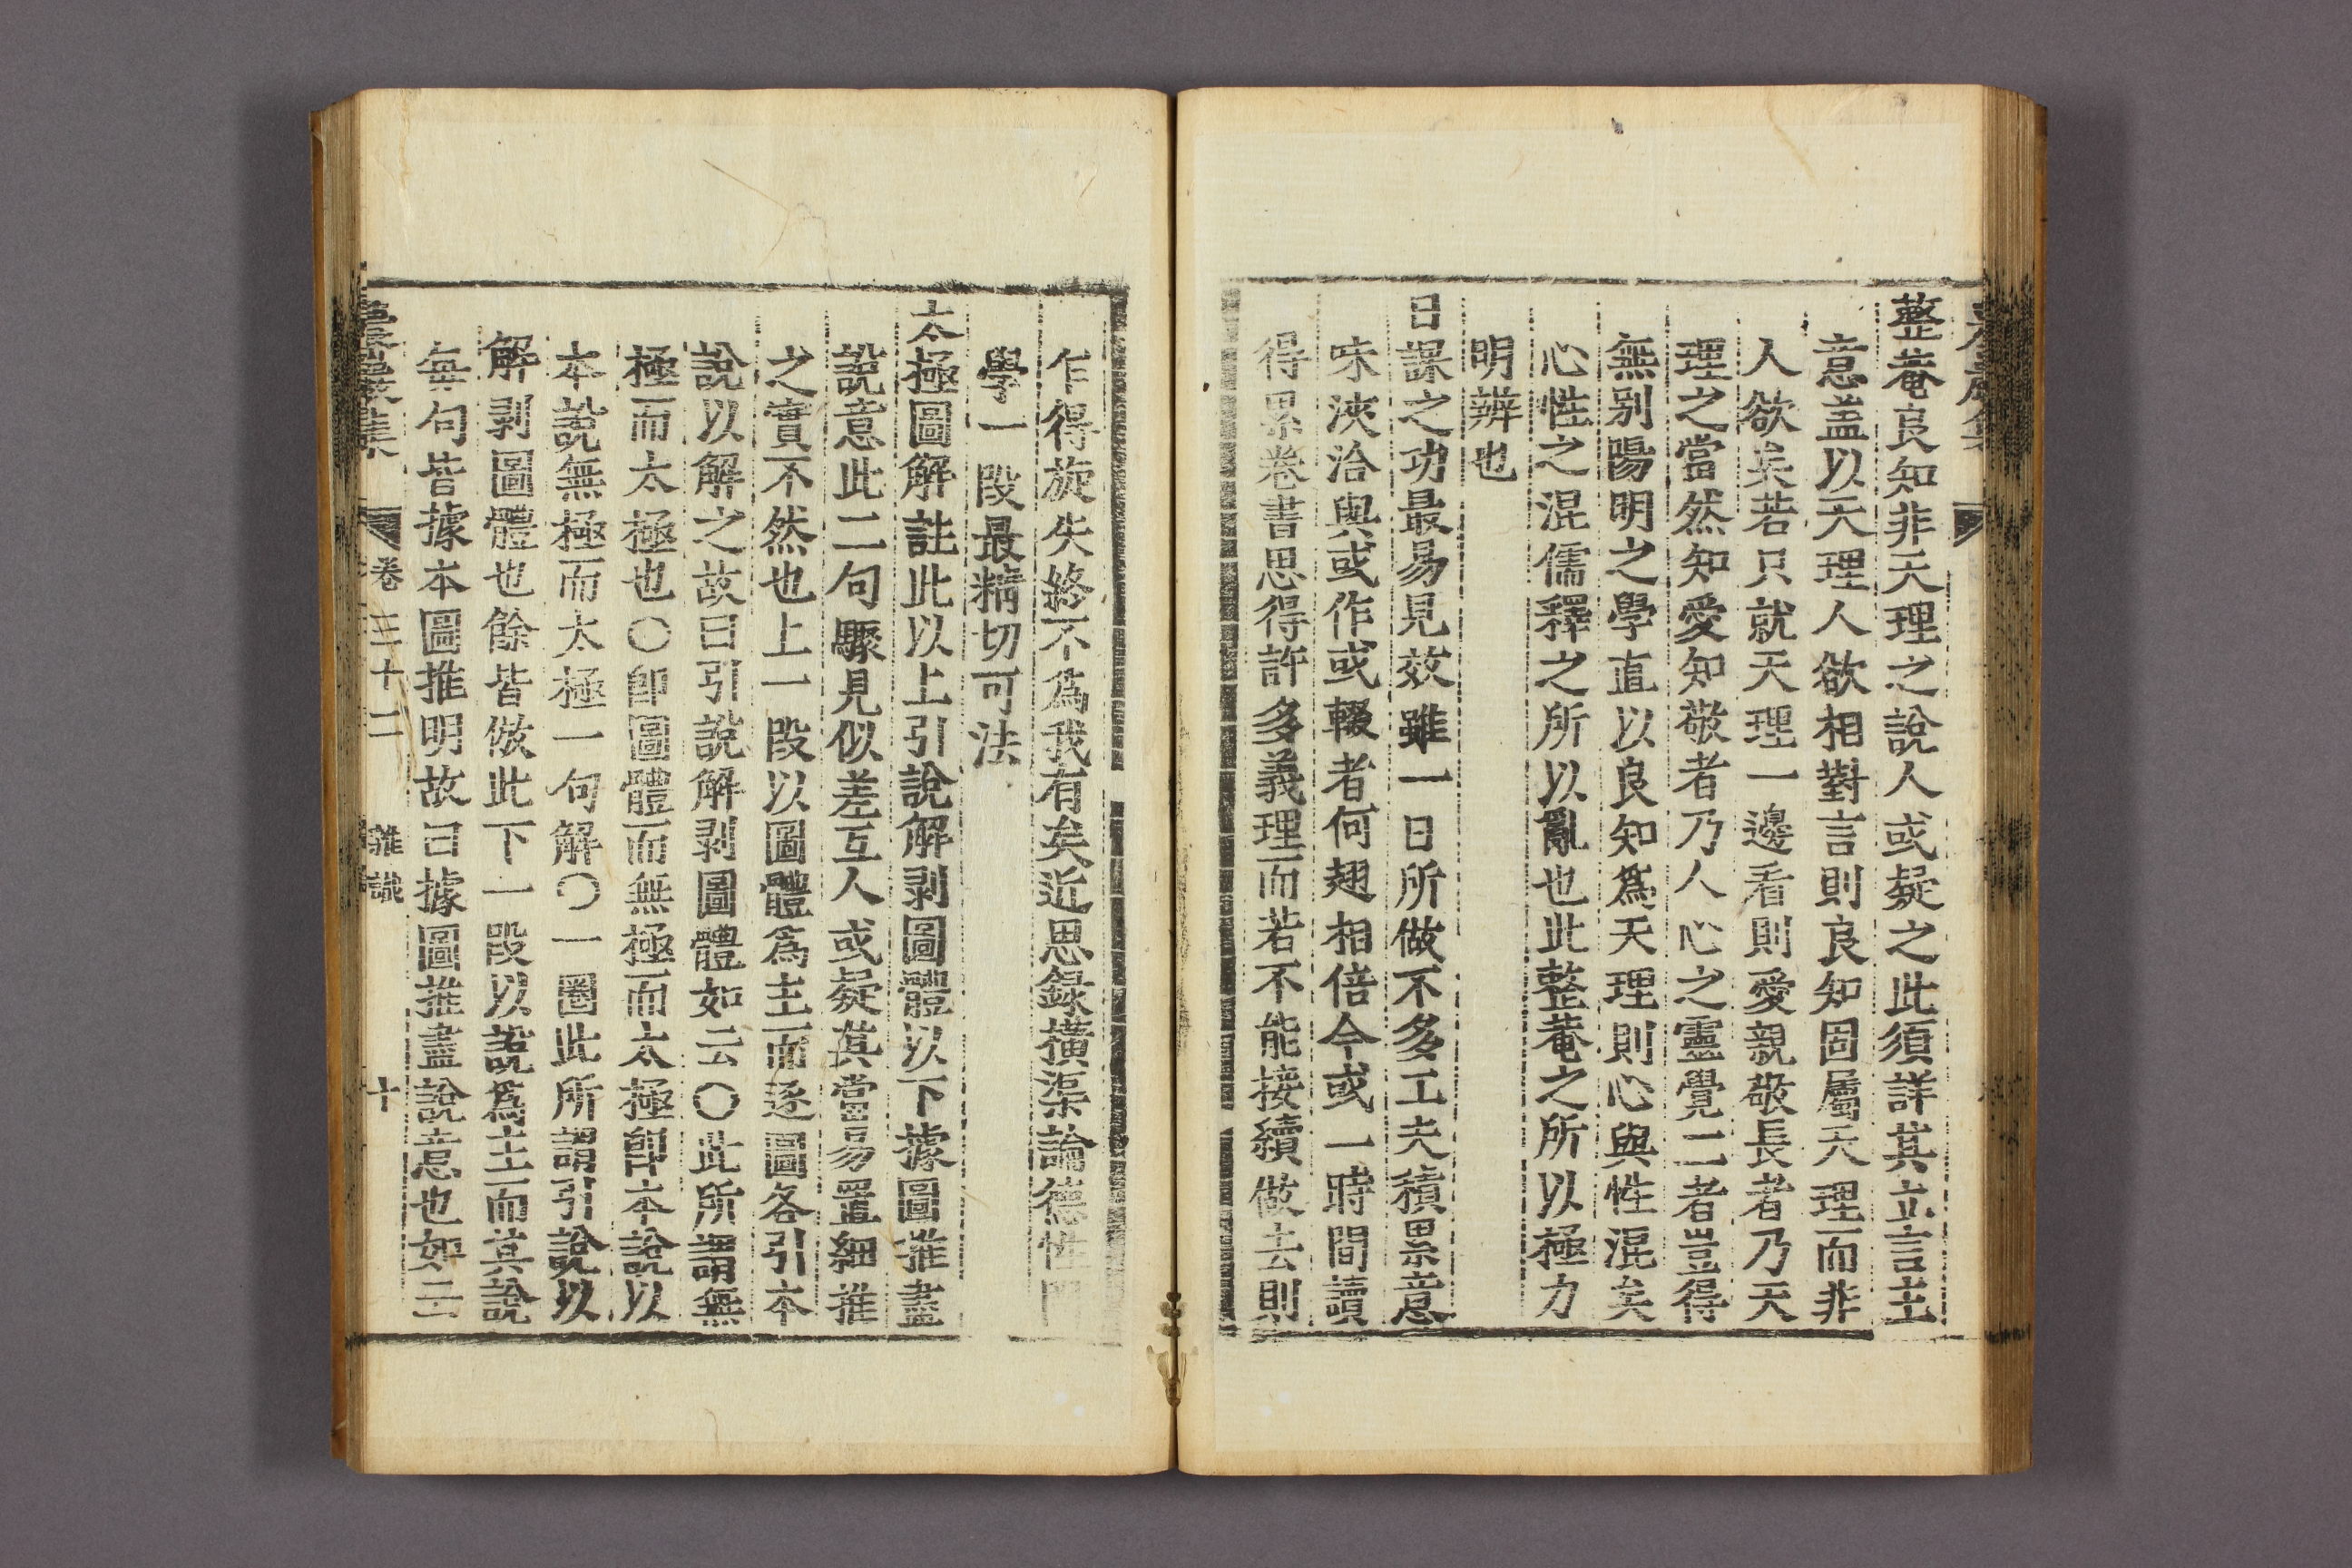 整菴良知非天理之說人或疑之此須詳其立言主
意盖以天理人欲相對言則良知固屬天理而非
人欲矣若只就天理一邊看則愛親敬長者乃天
理之當然知愛知敬者乃人心之靈覺二者豈得
無别陽明之學直以良知爲天理則心與性混矣
心性之混儒釋之所以亂也此整菴之所以極力
明辨也
日課之功最易見效雖一日所做不多工夫積累意
味浹洽與或作或輟者何翅相倍今或一時間讀
得累卷書思得許多義理而若不能接續做去則
乍得旋失終不爲我有矣近思錄橫渠論德性問
學一段最精切可法
太極圖解註此以上引說解剥圖體以下據圖推盡
說意此二句驟見似差互人或疑其當易置細推
之實不然也上一段以圖體爲主而逐圖各引本
說以解之故曰引說解剥圖體如云〇此所謂無
極而太極也〇卽圖體而無極而太極卽本說以
本說無極而太極一句解〇一圈此所謂引說以
解剥圖體也餘皆倣此下一段以說爲主而其說
每句皆據本圖推明故曰據圖推盡說意也如云
卷三十二
雜識
十